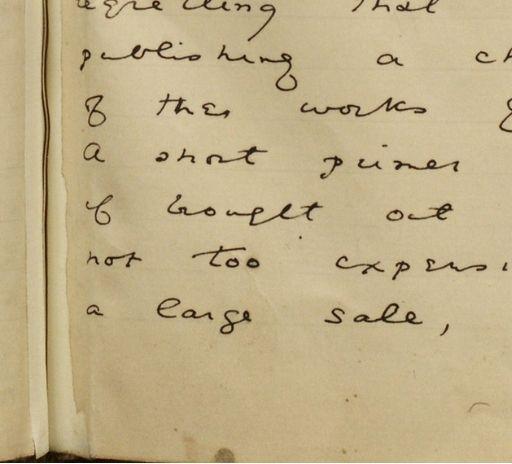 that
publishing a ch
of this works
A short primer
if brought out
not too expensi
a large sale,